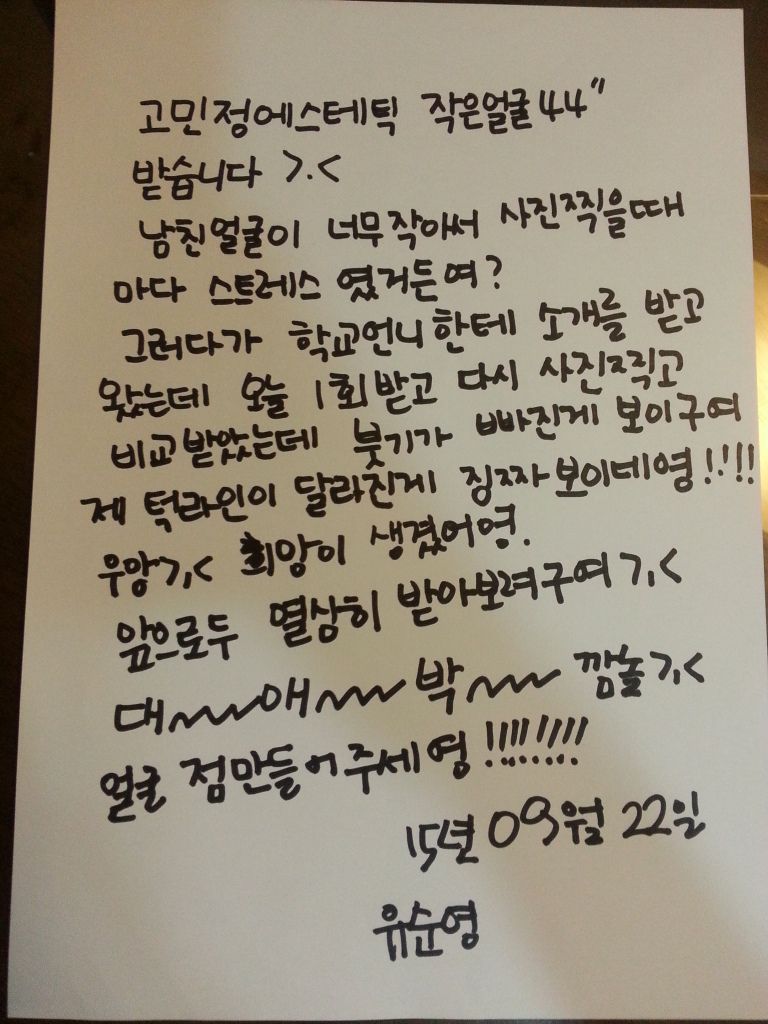 고민정에스테틱 작은얼굴44"
받습니다 >.<
남친얼굴이 너무작아서 사진찍을때
마다 스트레스 였거든여?
그러다가 학교언니한테 소개를 받고
왔는데 오늘 1회받고 다시 사진찍고
비교받았는데 붓기가 빠진게 보이구여
제 턱라인이 달라진게 징짜보이네영!.'!!
우앙>.< 희망이 생겼어영.
앞으로두 열심히 받아보려구여>.<
대~~~애~~~박~~~ 깜놀>.<
얼굴 점만들어주세영!!!!!!!!!
15년 09월 22일
유순영